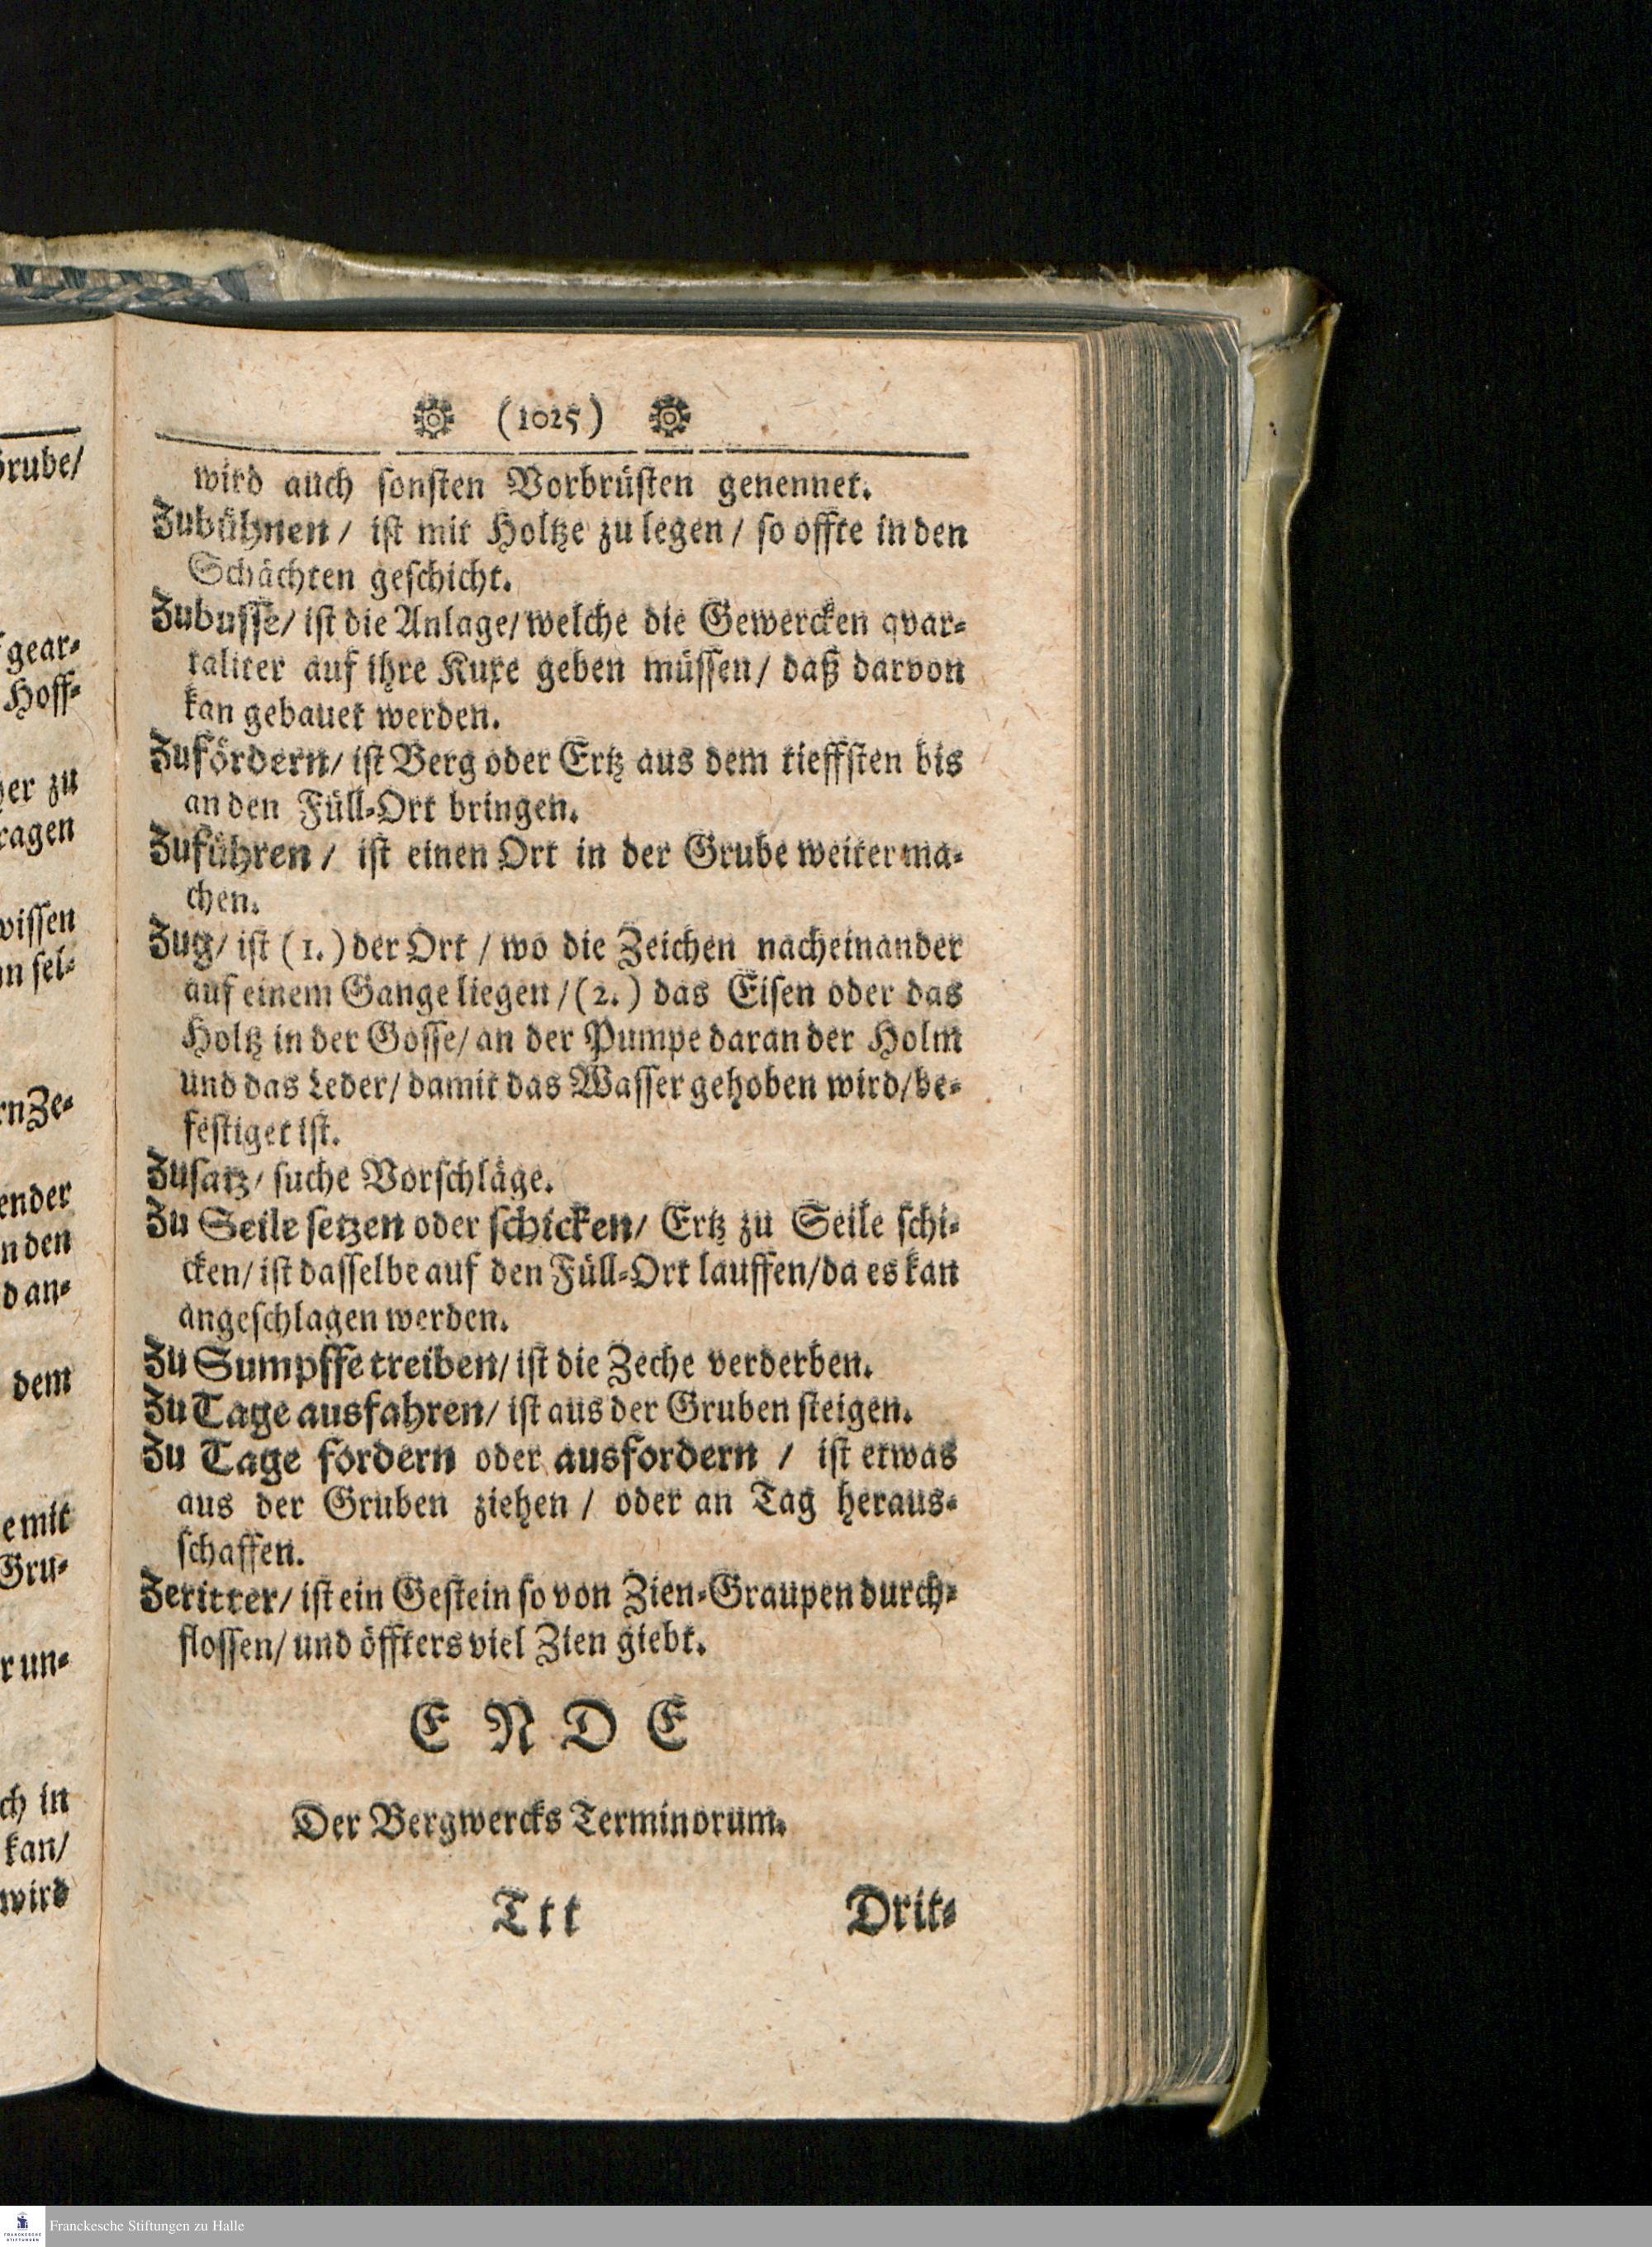 Grube/
gear-
Hoff-
er zu
ragen
wissen
n sel-
rn Ze-
ender
n den
d an-
dem
e mit
Gru-
r un-
ch in
kan/
wird
(1025)
wird auch sonsten Vorbrüsten genennet.
Zubühnen / ist mit Holtze zu legen / so offte in den
Schächten geschicht.
Zubusse/ ist die Anlage/ welche die Gewercken qvar-
taliter auf ihre Kuxe geben müssen/ daß darvon
kan gebauet werden.
Zufördern/ ist Berg oder Ertz aus dem tieffsten bis
an den Füll-Ort bringen.
Zuführen / ist einen Ort in der Grube weiter ma-
chen.
Zug/ ist (1.) der Ort / wo die Zeichen nacheinander
auf einem Gange liegen /(2.) das Eisen oder das
Holtz in der Gosse/ an der Pumpe daran der Holm
und das Leder/ damit das Wasser gehoben wird/ be-
festiget ist.
Zusatz/ suche Vorschläge.
Zu Seile setzen oder schicken/ Ertz zu Seile schi-
cken/ ist dasselbe auf den Füll-Ort lauffen/da es kan
angeschlagen werden.
Zu Sumpffe treiben/ ist die Zeche verderben.
Zu Tage ausfahren/ ist aus der Gruben steigen.
Zu Tage fordern oder ausfordern / ist etwas
aus der Gruben ziehen / oder an Tag heraus-
schaffen.
Zeritter/ ist ein Gestein so von Zien-Graupen durch-
flossen/ und öffters viel Zien giebt.
ENDE
Der Bergwercks Terminorum.
Ttt Drit-
FRANCKESCHE STIFTUNGEN
Franckesche Stiftungen zu Halle